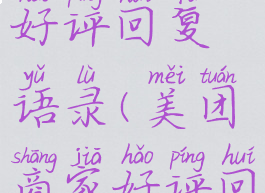 hǎo píng huí fù
好评回复
yǔ lù měi tuán
语录(美团
shāng jiā hǎo píng huí
商家好评回